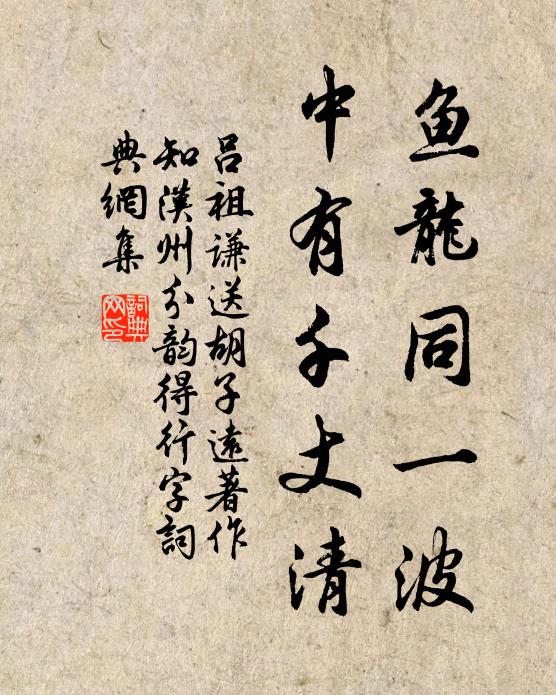 鱼龍同一波
中有千丈清
吕祖谦送胡子遠著作
知漢州分韵得行字詞
典網集
詞典网印